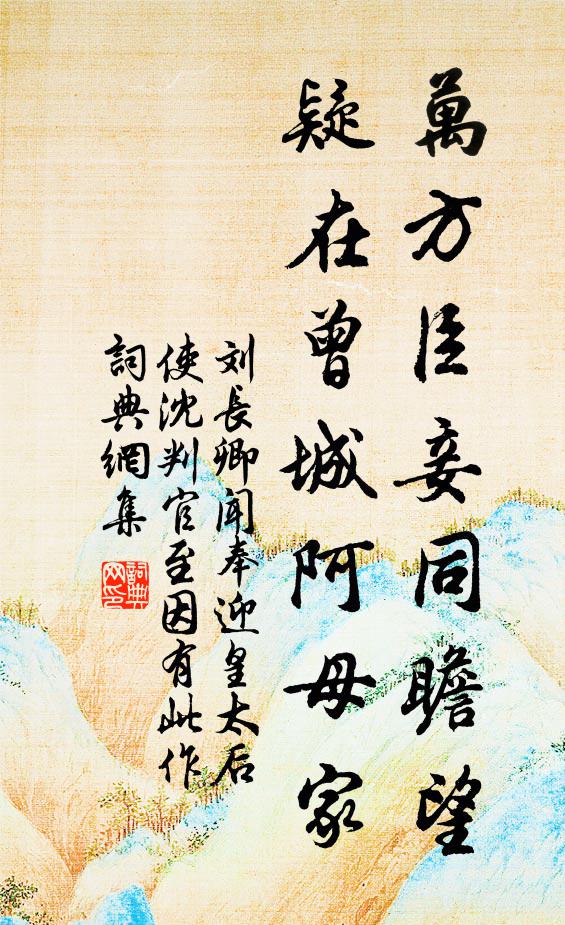 萬方臣妾同瞻望
疑在曾城阿母家
刘長卿聞奉迎皇太后
使沈判官至因有此作
詞典網集
詞典
网印